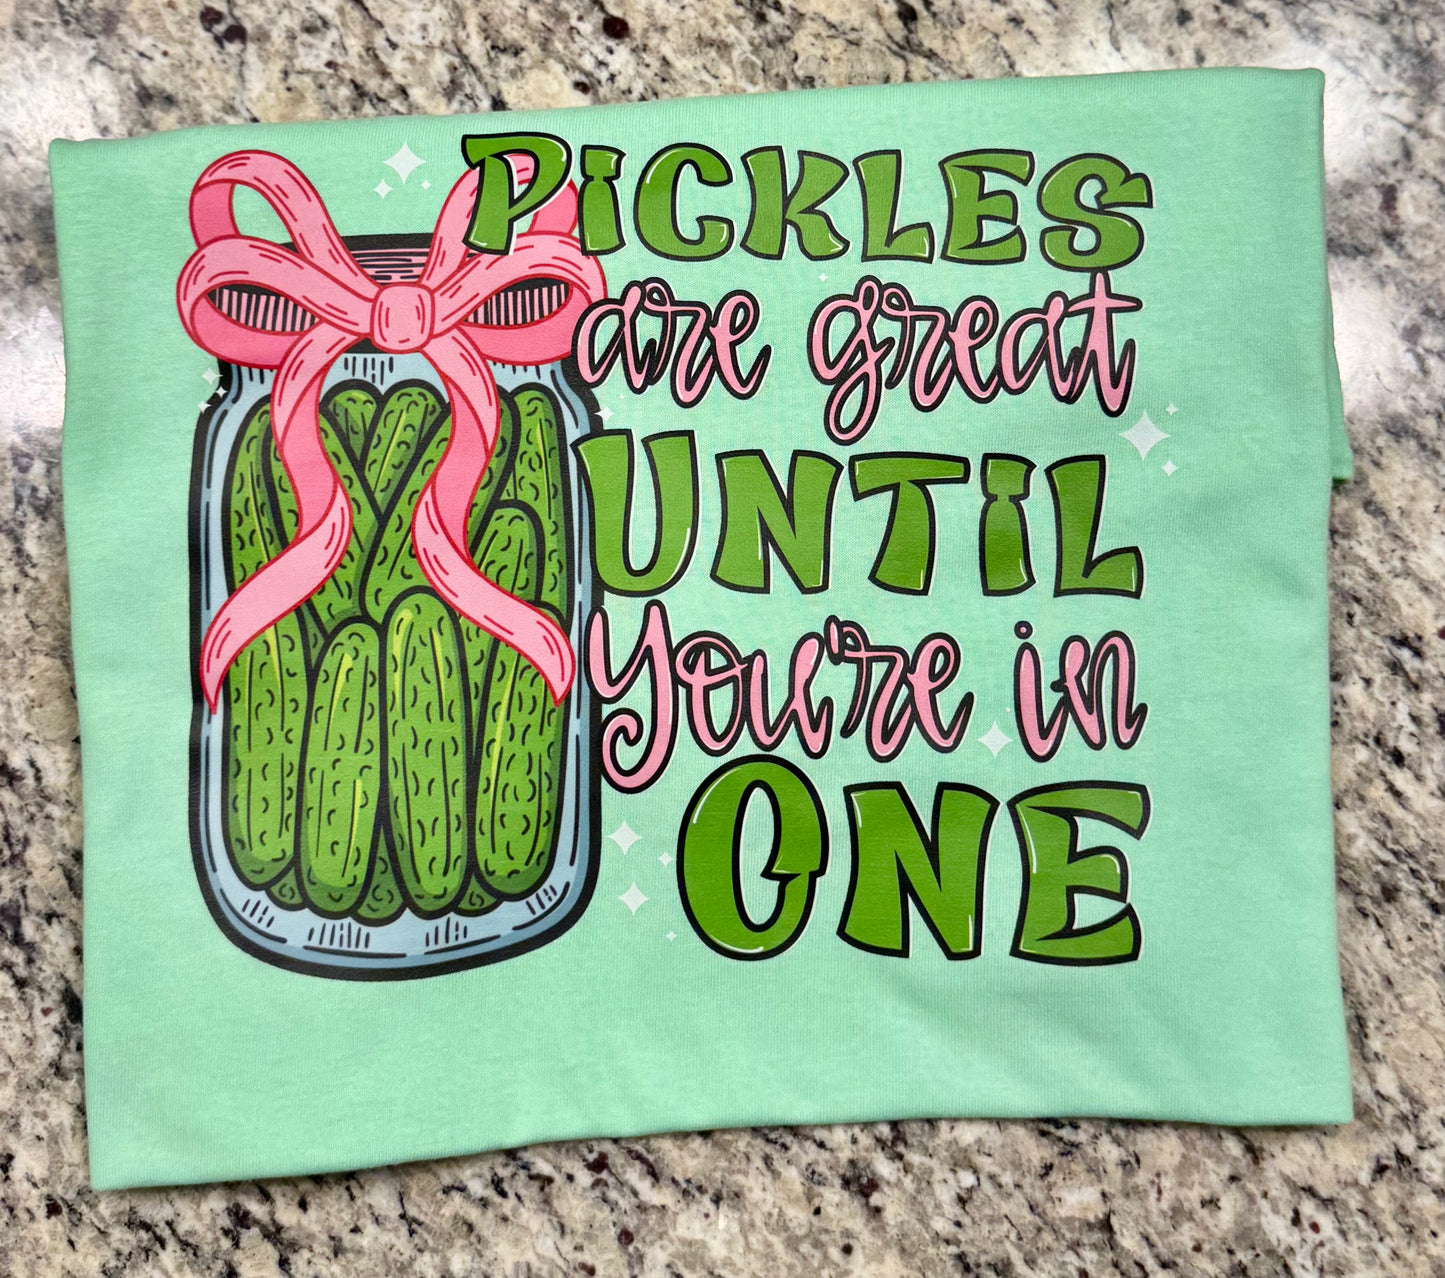 PiCKLES
are great
UNTiL
You're in
ONE